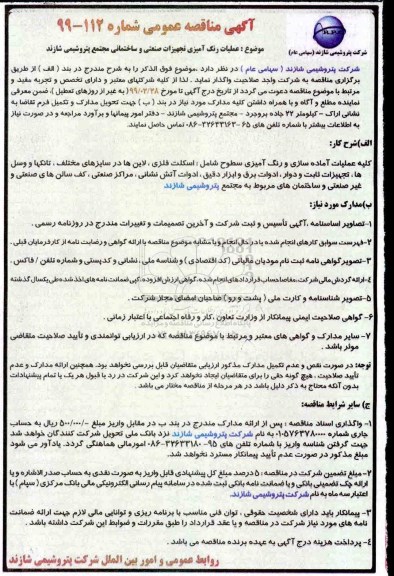 آگهی مناقصه عمومی شماره ۱۱۲-۹۹
شرکت پتروشیمی شازند (سهامی عام)
موضوع : عملیات رنگ آمیزی تجهیزات صنعتی و ساختمانی مجتمع پتروشیمی شازند
شرکت پتروشیمی شازند ( سهامی عام ) در نظر دارد .موضوع فوق الذکر را به شرح مندرج در بند ( الف ) از طریق
برگزاری مناقصه به شرکت واجد صلاحیت واگذار نماید . لذا از کلیه شرکتهای معتبر و دارای تخصص و تجربه مفید و
مرتبط با موضوع مناقصه دعوت می گردد از تاریخ درج آگهی تا مورخ ۹۹/۰۲/۲۸ (به غیر از روزهای تعطیل )، ضمن معرفی
نماینده مطلع و آگاه و با همراه داشتن کلیه مدارک مورد نیاز در بند ( ب ) جهت تحویل مدارک و تکمیل فرم تقاضا به
نشانی اراک – کیلومتر ۲۲ جاده بروجرد – مجتمع پتروشیمی شازند – دفتر امور پیمانها و برآورد مراجعه و در صورت نیاز
به اطلاعات بیشتر با شماره تلفن های ۶۵-۳۲۶۳۳۱۶۳-۰۸۶ تماس حاصل نمایند.
الف)شرح کار:
کلیه عملیات آماده سازی و رنگ آمیزی سطوح شامل : اسکلت فلزی ، لاین ها در سایزهای مختلف ، تانکها و وسل
ها ، تجهیزات ثابت و دوار ، ادوات برق و ابزار دقیق ، ادوات آتش نشانی ، مراکز صنعتی ، کف سالن های صنعتی و
غیر صنعتی و ساختمان های مربوط به مجتمع پتروشیمی شازند.
ب)مدارک مورد نیاز:
۱-تصاویر اساسنامه ،آگهی تأسیس و ثبت شرکت و آخرین تصمیمات و تغییرات مندرج در روزنامه رسمی .
۲-فهرست سوابق کارهای انجام شده یا در حال انجام و یا مشابه موضوع مناقصه با ارائه گواهی و رضایت نامه از کارفرمایان قبلی .
۳-تصویر گواهی نامه ثبت نام مودیان مالیاتی (کد اقتصادی ) و شناسه ملی ، نشانی و کدپستی و شماره تلفن / فاکس .
۴-ارائه گردش مالی شرکت،مفاصاحساب قراردادهای انجام شده،گواهی ارزش افزوده،کپی ضمانت نامه های اخذ شده طی یکسال گذشته
۵-تصویر شناسنامه و کارت ملی ( پشت و رو) صاحبان امضای مجاز شرکت .
۶- گواهی صلاحیت ایمنی پیمانکار از وزارت تعاون ،کار و رفاه اجتماعی با اعتبار زمانی .
۷- سایر مدارک و گواهی های معتبر و مرتبط با موضوع مناقصه که در ارزیابی توانمندی و تأیید صلاحیت متقاضی
موثر باشد .
توجه: در صورت نقص و عدم تکمیل مدارک مذکور ارزیابی متقاضیان قابل بررسی نخواهد بود. همچنین ارائه مدارک و عدم
تأیید صلاحیت ، هیچ گونه حقی را برای متقاضیان ایجاد نخواهد کرد و این شرکت در رد یا قبول هر یک یا تمام پیشنهادات
بدون آنکه محتاج به ذکر دلیل باشد در هر مرحله از مناقصه مختار می باشد .
ج) سایر شرایط مناقصه:
۱- واگذاری اسناد مناقصه : پس از ارائه مدارک مندرج در بند ب در مقابل واریز مبلغ -/۵۰۰/۰۰۰ ریال به حساب
جاری شماره ۰۱۰۵۷۶۳۷۸۰۰۰ به نام شرکت پتروشیمی شازند نزد بانک ملی تحویل شرکت کنندگان خواهد شد
جهت گرفتن شناسه واریز با شماره تلفن های ۹۵-۳۲۶۳۳۱۸۰-۰۸۶ امورمالی هماهنگی گردد. یادآور می شود
مبلغ مذکور در صورت عدم تأیید پیمانکار مسترد نخواهد شد.
۲- مبلغ تضمین شرکت در مناقصه : ۵ درصد مبلغ کل پیشنهادی قابل واریز به صورت نقدی به حساب صدر الاشاره و یا
ارائه چک تضمینی بانکی و یا ضمانت نامه بانکی ثبت شده در سامانه پیام رسانی الکترونیکی مالی بانک مرکزی ( سپام ) با
اعتبار سه ماه به نام شرکت پتروشیمی شازند.
۳- پیمانکار باید دارای شخصیت حقوقی ، توان فنی مناسب با برنامه ریزی و توانایی مالی لازم جهت ارائه ضمانت
نامه های مورد نیاز شرکت در مناقصه و یا عقد قرارداد را طبق مقررات و ضوابط این شرکت داشته باشد .
۴- پرداخت هزینه درج آگهی به عهده برنده مناقصه می باشد .
روابط عمومی و امور بین الملل شرکت پتروشیمی شازند